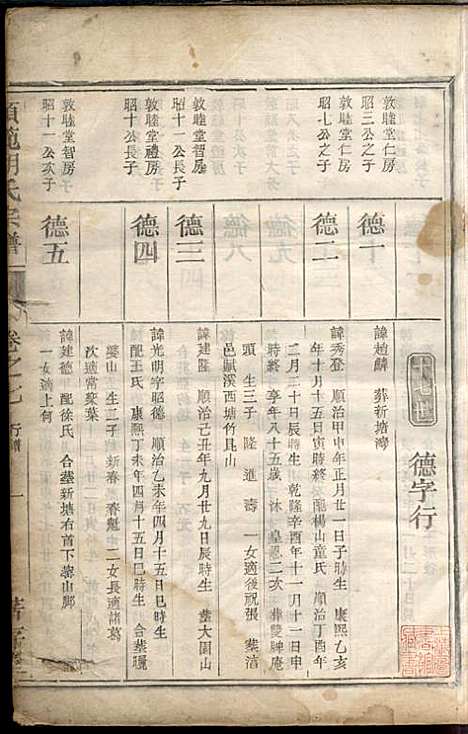 十七世
德字行
敦睦堂仁房
昭三公之子
德一
諱趙麟 葬新塘灣
敦睦堂仁房
昭七公之子
德二
諱秀登 順治甲申年正月廿一日子時生 康熙乙亥
年十月十五日寅時終 配龍楊山童氏 順治丁酉年
二月二十日辰時生 乾隆辛酉年十一月十一日申
時終 享年八十五歲 沐 皇恩二次 葬雙脾庵
頭 生三子 隆 進 壽 一女適後祝張 葬湆
邑賦溪西塘竹具山
敦睦堂智房
昭十一公長子
德三
諱建隆 順治己丑年九月廿九日辰時生 葬大園山
敦睦堂禮房
昭十公長子
德四
諱光明字昭德 順治乙未年四月十五日巳時生
配王氏 康熙丁未年四月十五日巳時生 合葬曬
婆山 生二子 新春 春魁 二女長適諸葛
次適常棗葉
敦睦堂智房
昭十一公次子
德五
諱建德 配徐氏 合葬新塘右首下蓬山脚
一女適上何
胡氏宗譜
卷之七
行譜
一